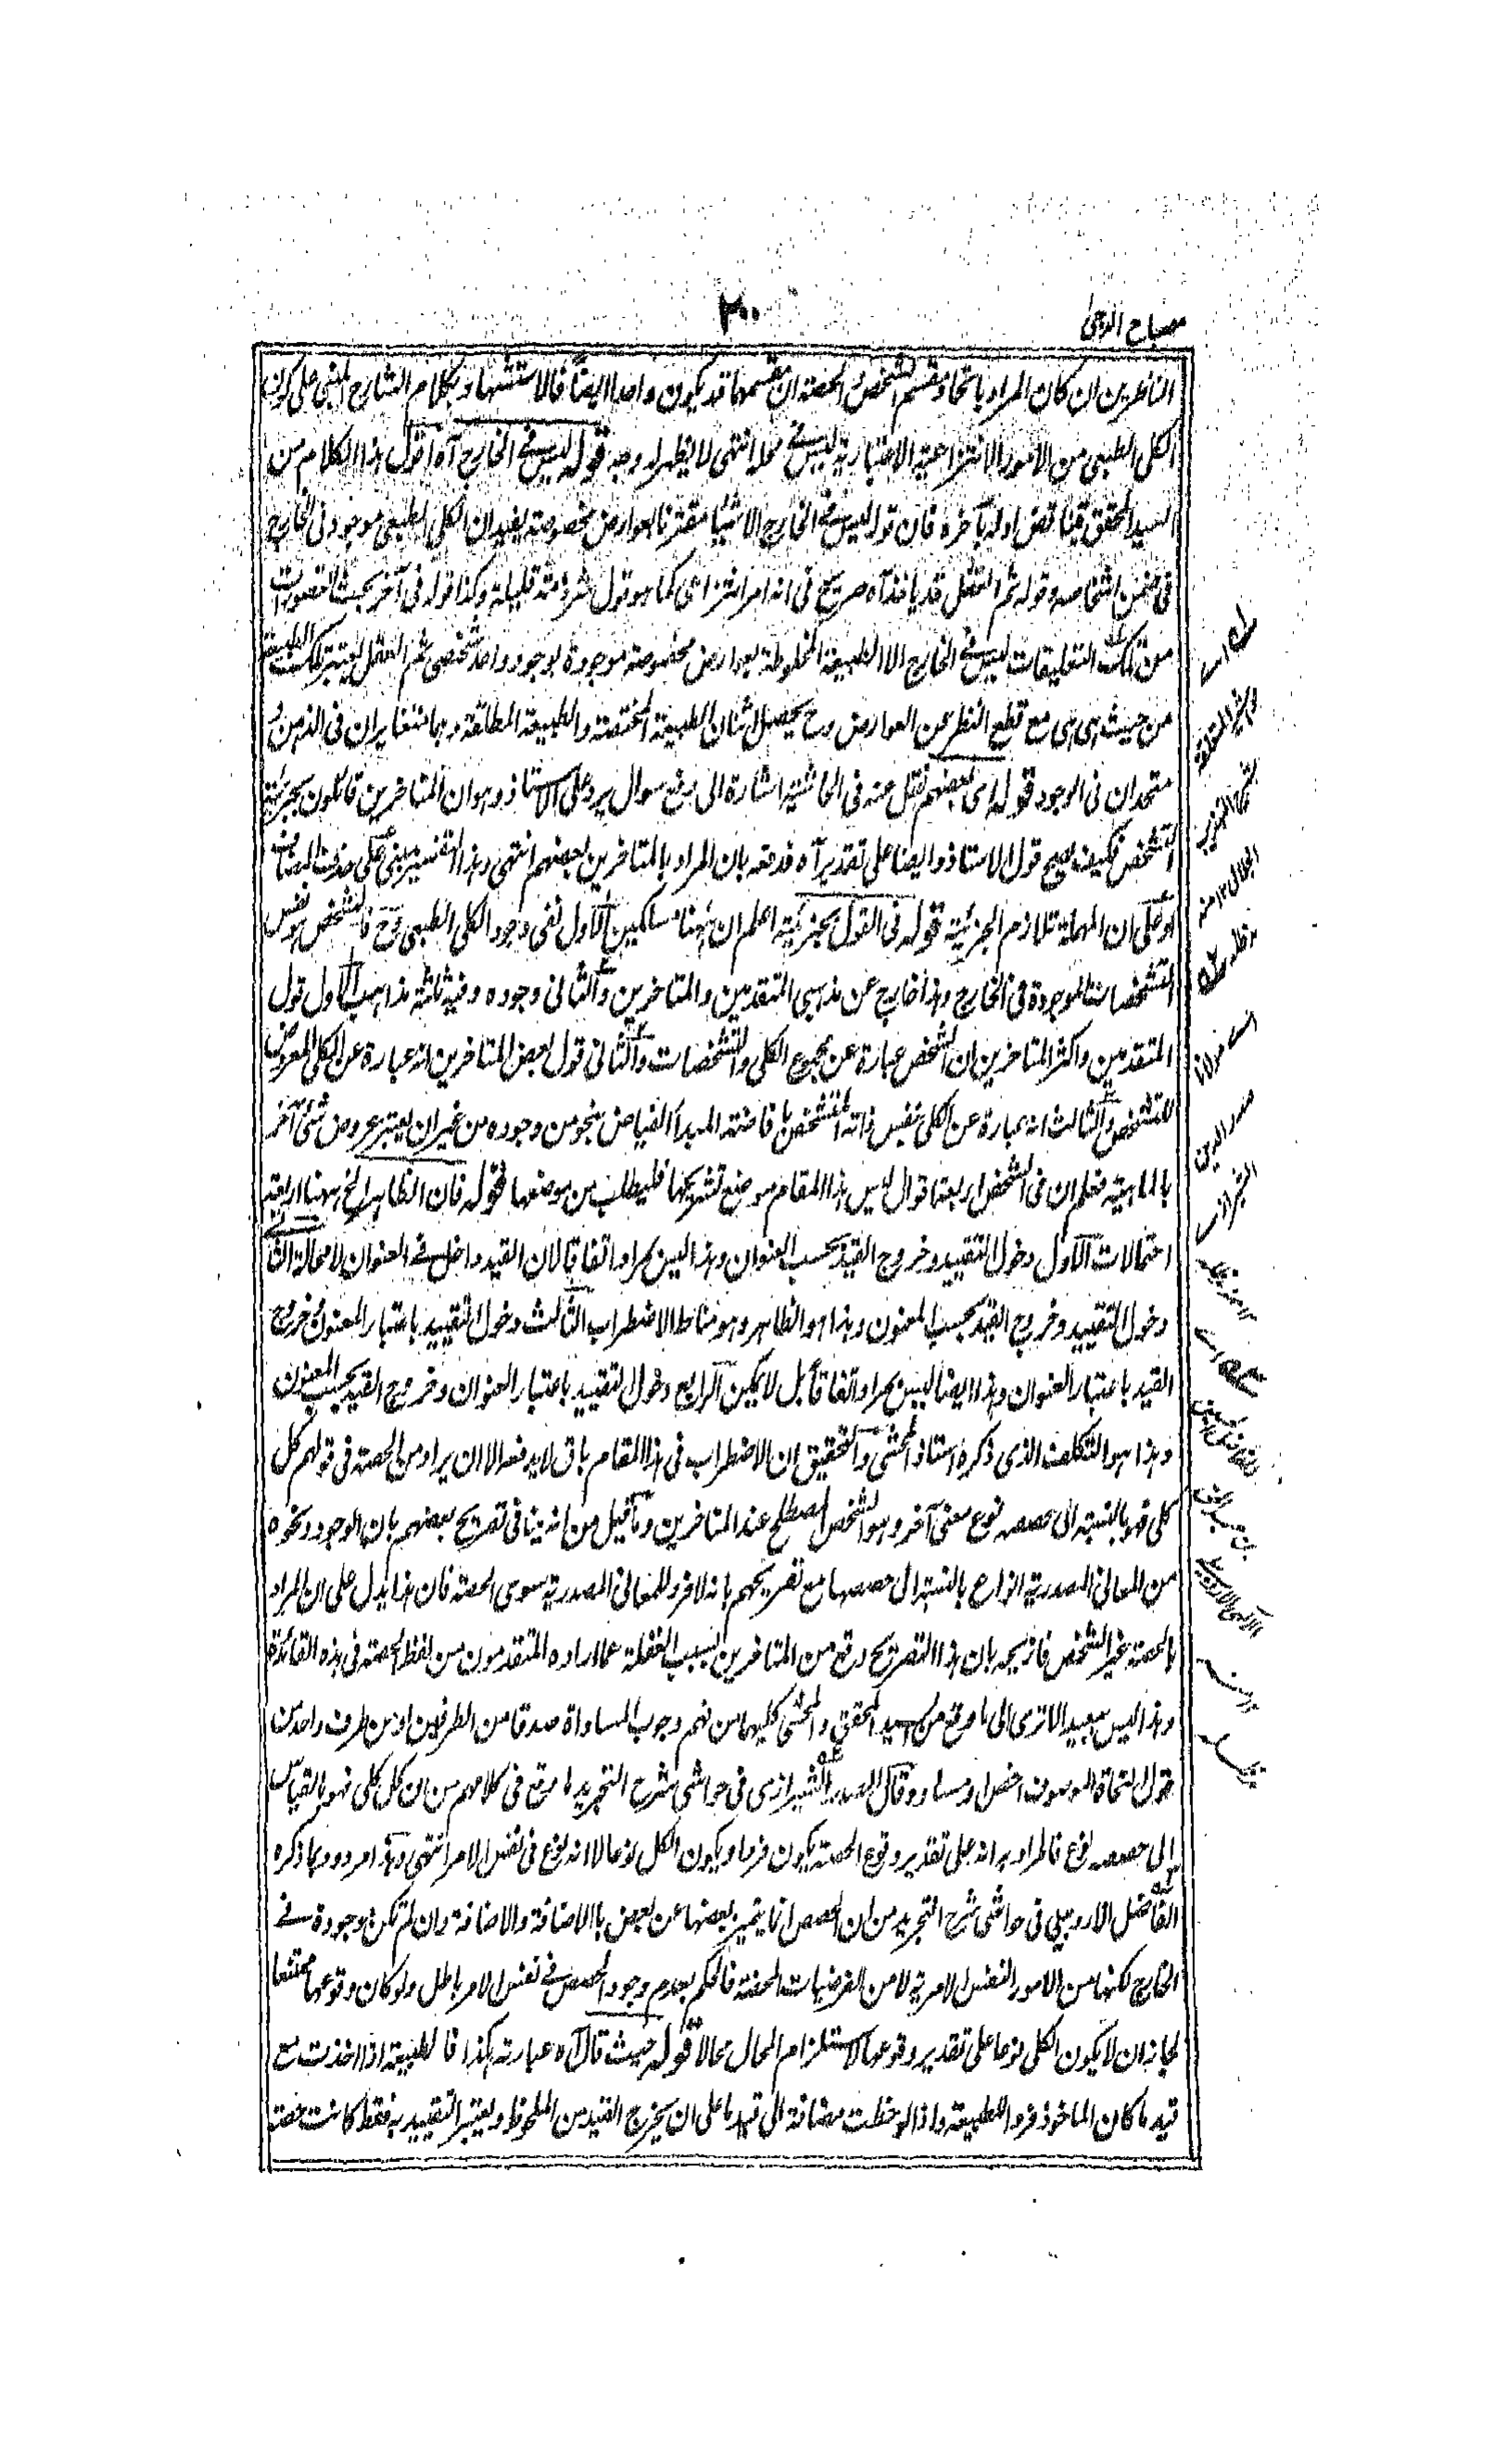 مصباح الدجى
٢٠٠
الناظرين ان كان المراد باتحاد مقسم الشخص والحصة ان مقسمهما قد يكون واحدا ايضا فالاستشهاد بكلام الشارح المبنى على كون
الكلى الطبيعى من الامور الانتزاعية الاعتبارية ليس فى محله انتهى لا يظهر له وجه قوله ليس فى الخارج آه اقول هذا الكلام من
السيد المحقق يناقض اوله آخره فان قوله ليس فى الخارج الا شيئا مقترنا بعوارض مخصوصة يفيد ان الكلى الطبعى موجود فى الخارج
فى ضمن اشخاصه وقوله ثم العقل قد ياخذ آه صريح فى انه امر انتزاعى كما هو قول شرذمة قليلة وكذا قوله فى آخر بحث التصورات
من تلك التعليقات ليس فى الخارج الا الطبيعة المخلوطة بعوارض مخصوصة موجودة بوجود واحد شخصى ثم العقل يعتبر تلك الطبيعة
من حيث هى هى مع قطع النظر عن العوارض وح يحصل اثنان الطبيعة المختصة والطبيعة المطلقة وهما متغايران فى الذهن و
متحدان فى الوجود قوله اى بعضهم نقل عنه فى الحاشية اشارة الى دفع سوال يرد على الاستاذ وهو ان المتاخرين قائلون بجزئية
التشخص فكيف يصح قول الاستاذ وايضا على تقدير آه فدفعه بان المراد بالمتاخرين بعضهم انتهى وهذا التفسير مبنى على حذف المضاف
او على ان المهملة تلازم الجزئية قوله فى القول بجزئيته اعلم ان ههنا مسلكين الاول نفى وجود الكلى الطبعى وح فالشخص هو نفس
التشخصات الموجودة فى الخارج وهذا خارج عن مذهبى المتقدمين والمتاخرين والثانى وجوده وفيه ثلثة مذاهب الاول قول
المتقدمين واكثر المتاخرين ان الشخص عبارة عن مجموع الكلى والتشخصات والثانى قول بعض المتاخرين انه عبارة عن الكلى المعروض
للتشخص والثالث انه عبارة عن الكلى بنفس ذاته المتشخص بافاضة المبدأ الفياض بنحو من وجوده من غير ان يعتبر عروض شئ آخر
بالماهية فعلم ان فى الشخص اربعة اقوال ليس هذا المقام موضع تشريحها فليطلب من موضعها قوله فان الظاهر الخ ههنا اربعة
احتمالات الاول دخول التقييد وخروج القيد بحسب العنوان وهذا ليس بمراد اتفاقا لان القيد داخل فى العنوان لا محالة الثانى
دخول التقييد وخروج القيد بحسب المعنون وهذا هو الظاهر وهو مناط الاضطراب الثالث دخول التقييد باعتبار المعنون وخروج
القيد باعتبار العنوان وهذا ايضا ليس بمراد اتفاقا بل لا يمكن الرابع دخول التقييد باعتبار العنوان وخروج القيد بحسب المعنون
وهذا هو التكلف الذى ذكره استاذ المحشى والتحقيق ان الاضطراب فى هذا المقام باق لا يدفعه الا ان يراد من الحصة فى قولهم كل
كلى فهو بالنسبة الى حصصه نوع معنى آخر وهو الشخص المصطلح عند المتاخرين وما قيل من انه ينافى تصريح بعضهم بان الوجود ونحوه
من المعانى المصدرية انواع بالنسبة الى حصصها مع تصريحهم بانه لا فرد للمعانى المصدرية سوى الحصة فان هذا يدل على ان المراد
بالحصة غير الشخص فازيحه بان هذا التصريح وقع من المتاخرين بسبب الغفلة عما اراده المتقدمون من لفظ الحصة فى هذه القاعدة
وهذا ليس ببعيد الا ترى الى ما وقع من السيد المحقق والمحشى كليهما من فهم وجوب المساواة صدقا من الطرفين او من طرف واحد من
قول النحاة الموصوف اخص او مساو وقال الصدر الشيرازى فى حواشى شرح التجريد ما وقع فى كلامهم من ان كل كلى فهو بالقياس
الى حصصه نوع فالمراد به انه على تقدير وقوع الحصة يكون فردا ويكون الكلى نوعا لا انه نوع فى نفس الامر انتهى وهذا مردود بما ذكره
الفاضل الاردبيلى فى حواشى شرح التجريد من ان الحصص انما يتميز بعضها عن بعض بالاضافة والاضافة وان لم تكن موجودة فى
الخارج لكنها من الامور النفس الامرية لا من الفرضيات المحضة فالحكم بعدم وجود الحصص فى نفس الامر باطل ولو كان وقوعها ممتنعا
لجاز ان لا يكون الكلى نوعا على تقدير وقوعها لاستلزام المحال محالا قوله حيث قال آه عبارته هكذا فالطبيعة اذا اخذت مع
قيد ما كان الماخوذ فردا للطبيعة واذا لوحظت مضافة الى قيد ما على ان يخرج القيد من الملحوظ ويعتبر التقييد به فقط كانت حصة